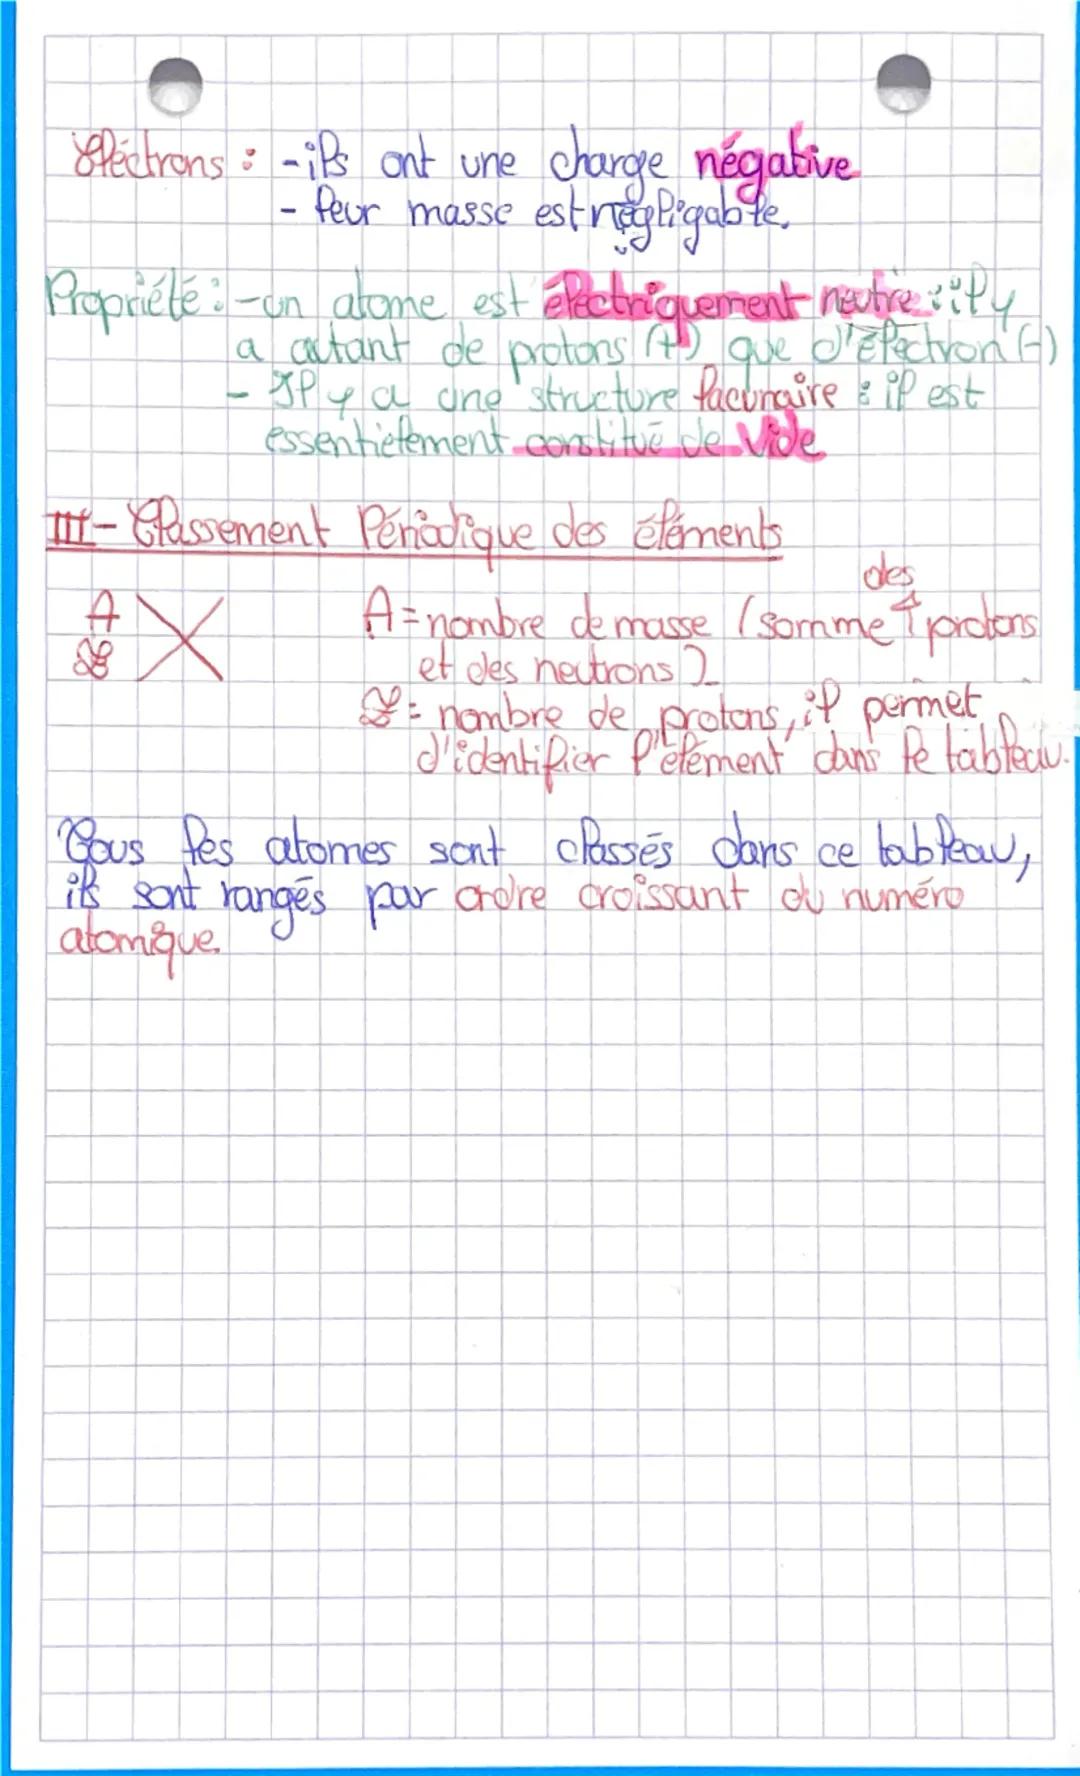 Électrons : - ils ont une charge négative
- leur masse est négligable.
Propriété : - un atome est électriquement neutre : il y
a autant de protons (+) que d'électron (-)
- Il y a une structure lacunaire : il est
essentielement constitué de vide
III - Classement Périodique des éléments
des
A A = nombre de masse (somme protons
Z X et des neutrons)
Z = nombre de protons, il permet
d'identifier l'élément dans le tableau.
Tous les atomes sont classés dans ce tableau,
ils sont rangés par ordre croissant du numéro
atomique.